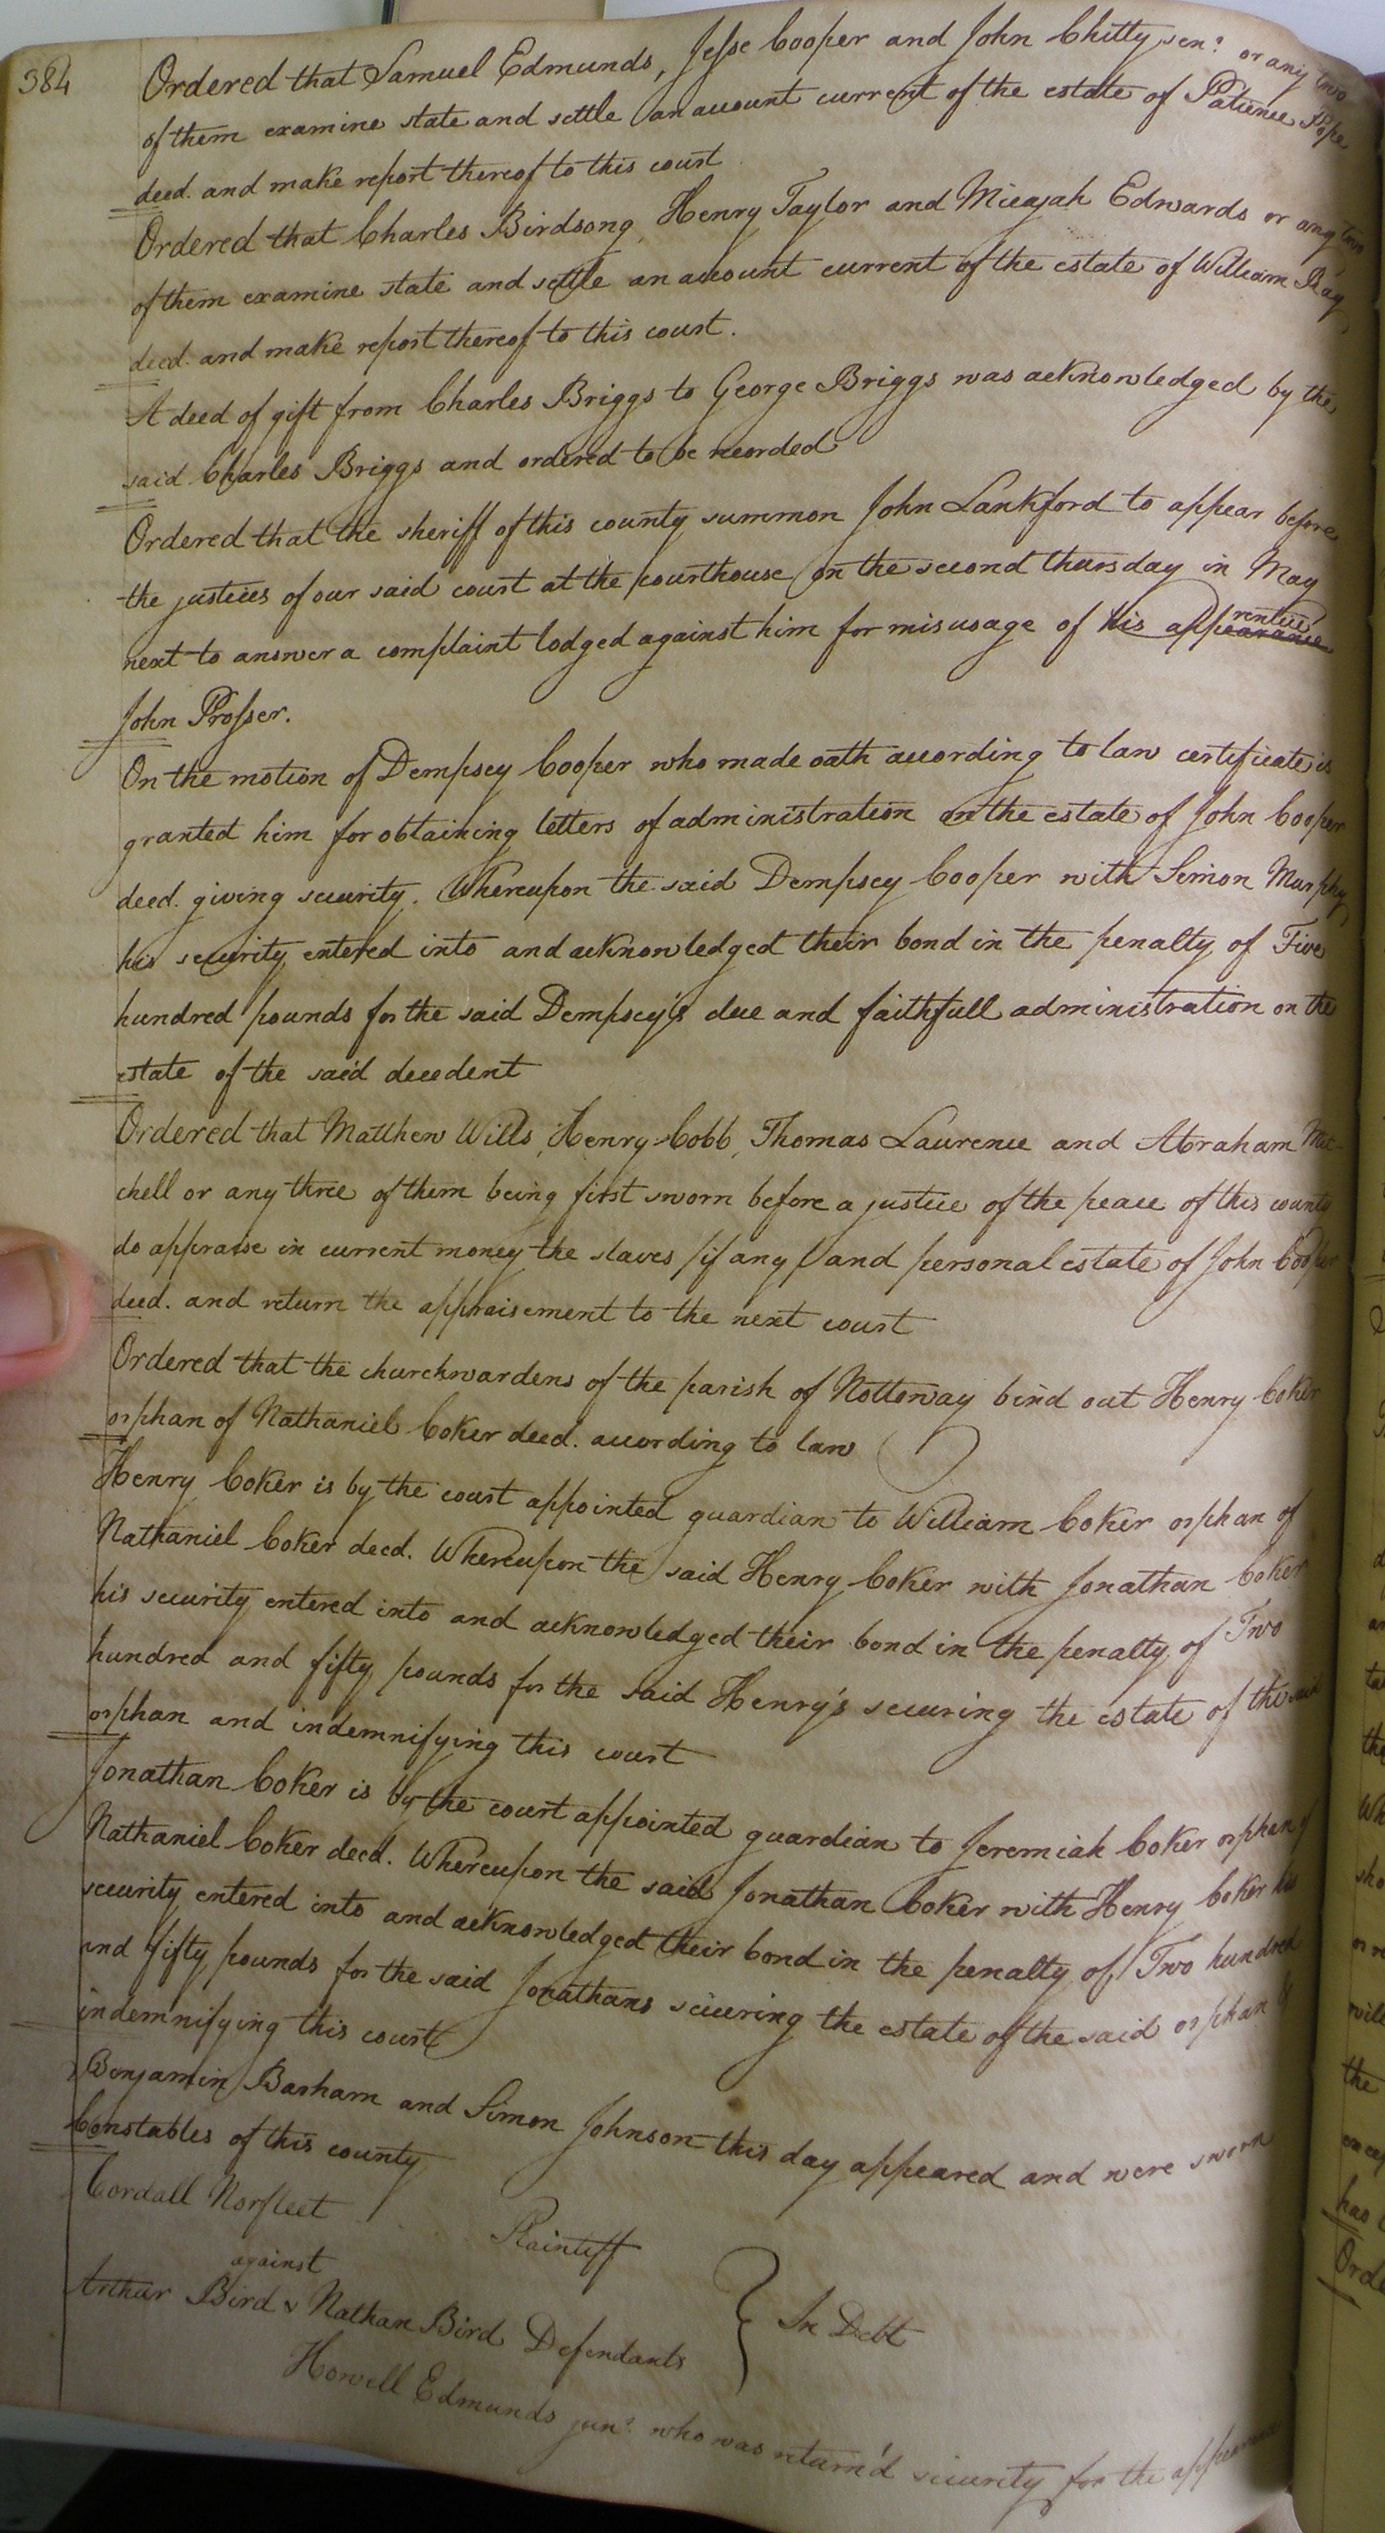 384
Ordered that Samuel Edmunds, Jesse Cooper and John Chitty senr. or any two
of them examine state and settle an account current of the estate of Patience Pope
deced. and make report thereof to this court
Ordered that Charles Birdsong, Henry Taylor and Micajah Edwards or any two
of them examine state and settle an account current of the estate of William Ray
deced. and make report thereof to this court.
A deed of gift from Charles Briggs to George Briggs was acknowledged by the
said Charles Briggs and ordered to be recorded
Ordered that the sheriff of this county summon John Lankford to appear before
the justices of our said court at the courthouse on the second thursday in May
next to answer a complaint lodged against him for misusage of his apprentice
John Prosser.
On the motion of Dempsey Cooper who made oath according to law certificate is
granted him for obtaining letters of administration on the estate of John Cooper
deced. giving security. Whereupon the said Dempsey Cooper with Simon Murphy
his security entered into and acknowledged their bond in the penalty of Five
hundred pounds for the said Dempsey's due and faithfull administration on the
estate of the said decedent
Ordered that Matthew Wills, Henry Cobb, Thomas Laurence and Abraham Mit-
chell or any three of them being first sworn before a justice of the peace of this county
do appraise in current money the slaves (if any) and personal estate of John Cooper
deced. and return the appraisement to the next court
Ordered that the churchwardens of the parish of Nottoway bind out Henry Coker
orphan of Nathaniel Coker deced. according to law
Henry Coker is by the court appointed guardian to William Coker orphan of
Nathaniel Coker deced. Whereupon the said Henry Coker with Jonathan Coker
his security entered into and acknowledged their bond in the penalty of Two
hundred and fifty pounds for the said Henry's securing the estate of the said
orphan and indemnifying this court
Jonathan Coker is by the court appointed guardian to Jeremiah Coker orphan of
Nathaniel Coker deced. Whereupon the said Jonathan Coker with Henry Coker his
security entered into and acknowledged their bond in the penalty of Two hundred
and fifty pounds for the said Jonathans securing the estate of the said orphan &
indemnifying this court
Benjamin Barham and Simon Johnson this day appeared and were sworn
Constables of this county
Cordall Norfleet Plaintiff
against
In Debt
Arthur Bird & Nathan Bird Defendants
Howell Edmunds junr. who was return'd security for the appearance